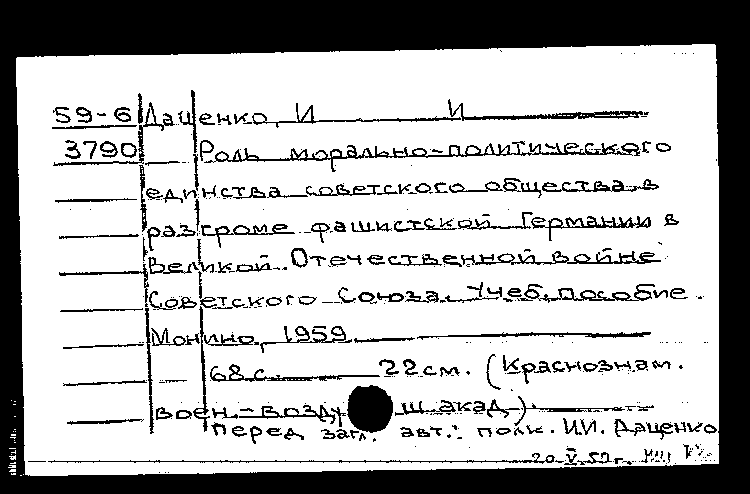 59-6 Даценко, И И
3790 Роль морально-политического
единства советского общества в
разгроме фашистской Германии в
Великой Отечественной войне
Советского Союза. Учеб. пособие.
Монино, 1959.
68 с. 22 см. (Краснознам.
воен.-возду ш. акад.).
Перед загл. авт.: полк. И.И. Даценко
20 V 59 г.